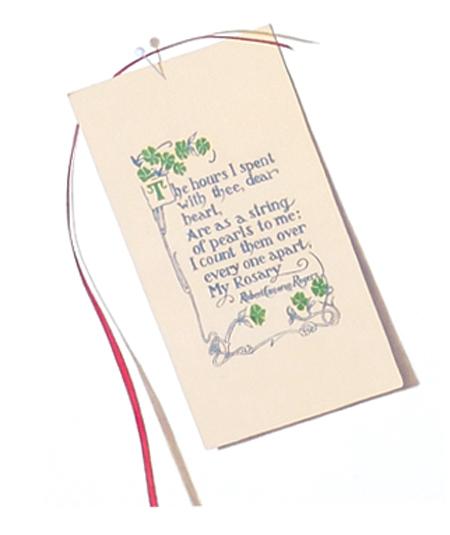 The hours I spent
with thee, dear
heart,
Are as a string
of pearls to me:
I count them over
every one apart,
My Rosary
Robert Cameron Rogers